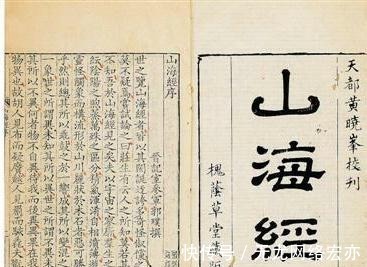 天都黄曉峯校刊
山海經
槐蔭草堂藏版
山海經序
晉記室參軍郭璞撰
世之覽山海經者皆以其閎誕迂誇多奇怪俶儻之
莫不疑焉嘗試論之曰莊生有云人之所知莫若其
不知吾於山海經見之矣夫以宇宙之寥廓群生之
紜陰陽之煦蒸萬殊之區分精氣渾淆自相濆薄遊
靈怪觸象而構流形於山川麗狀於木石者惡可勝
乎然則總其所以乖鼓之於一響成其所以變混之
一象世之所謂異未知其所以異世之所謂不異未
其所以不異何者物不自異待我而後異異果在我
物異也故胡人見布而疑黂越人見罽而駭
快传号